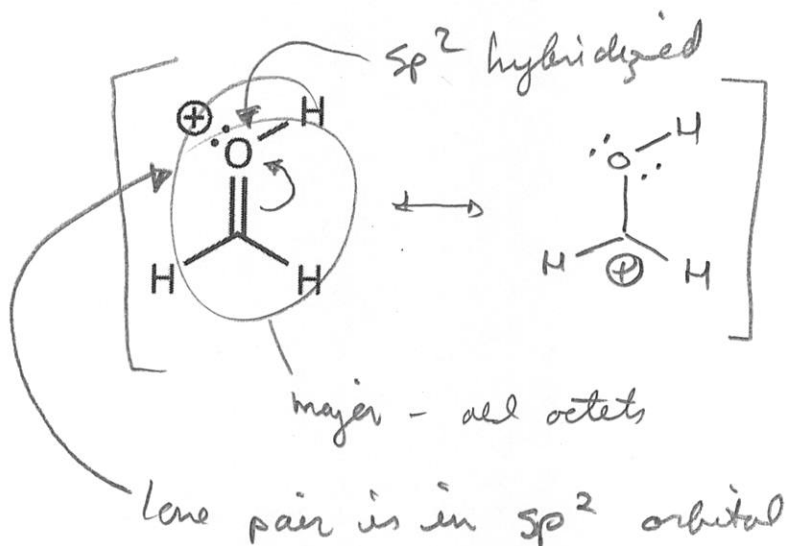 sp² hybridized
⊕ H
O
H H
O H
H ⊕ H
major - all octets
lone pair is in sp² orbital